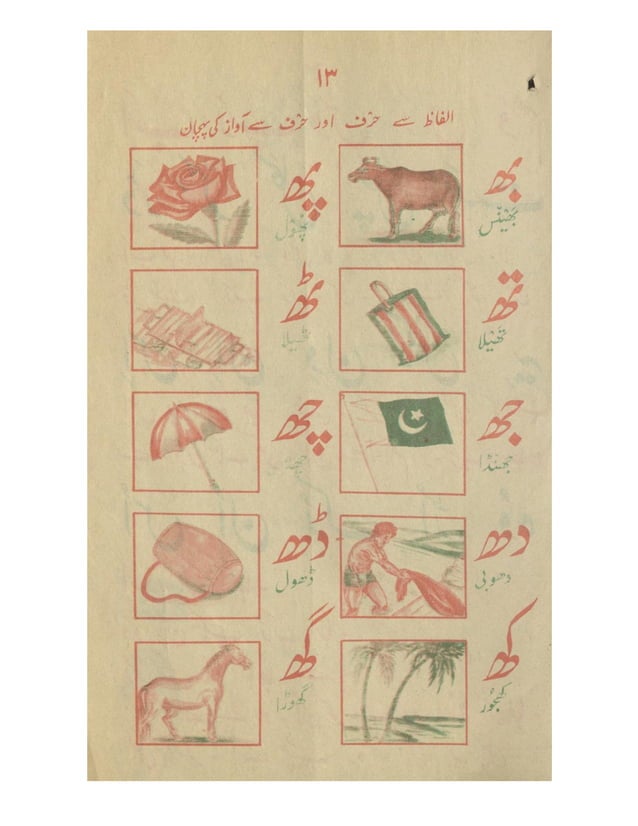 ۱۳
الفاظ سے حرف اور حرف سے آواز کی پہچان
بھ
بھینس
پھ
پھول
تھ
تھیلا
ٹھ
ٹھیلا
جھ
جھنڈا
چھ
دھ
دھوبی
ڈھ
ڈھول
کھ
کھجور
گھ
گھوڑا